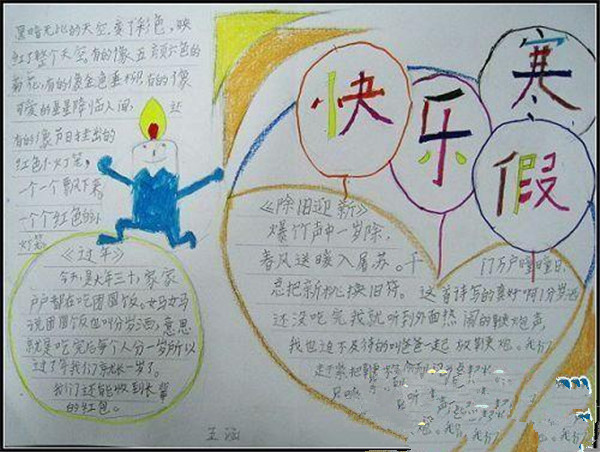 黑暗无比的天空变了彩色,映
红了整个天空,有的像五颜六色的
菊花,有的像金色垂柳,有的像
可爱的星星降临人间,还
有的像节日挂出的
红色小灯笼,
一个一个飘下来
一个个红色的小
灯笼
快乐寒假
《过年》
今天是大年三十,家家
户户都在吃团圆饭。女马女马
说团圆饭也叫分岁酒,意思
就是吃完后每个人分一岁所以
过了年我们年长一岁了。
我们还能收到长辈
的红包。
《除旧迎新》
爆竹声中一岁除,
春风送暖入屠苏。千
门万户曈曈日,
总把新桃换旧符。这首诗写的真好啊!分岁酒
还没吃完我就听到外面热闹的鞭炮声,
我也迫不及待的叫爸爸一起放鞭炮。我们
王涵